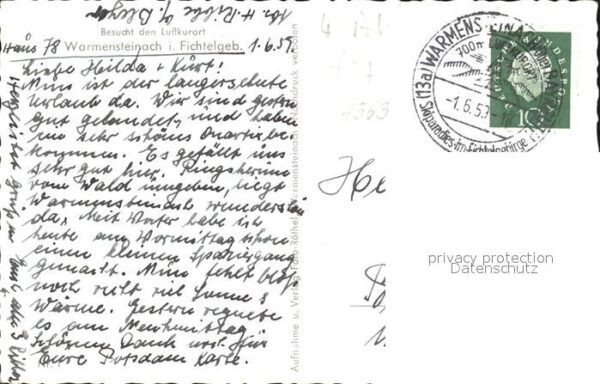 Adr. H. Röhl b/ Bleyer
Besucht den Luftkurort
Haus 78 Warmensteinach i. Fichtelgeb. 1.6.59.
Liebe Hilda + Kurt!
Nun ist der langersehnte
Urlaub da. Wir sind gestern
gut gelandet, und haben
ein sehr schönes Quartier be-
kommen. Es gefällt uns
sehr gut hier. Ringsherum
vom Wald umgeben, liegt
Warmensteinach wunderschön
da. Mit Vater habe ich
heute am Vormittag schon
einen kleinen Spaziergang
gemacht. Nun fehlt bloß
noch recht viel Sonne &
Wärme. Gestern regnete
es am Nachmittag.
Schönen Dank noch für
Eure Potsdam Karte.
Herzlich
Euch alle 3
(13a) WARMENSTEINACH über BAYREUTH
700m LUFTKURORT
-1.6.59.-
Skiparadies im Fichtelgebirge
10
He
privacy protection
Datenschutz